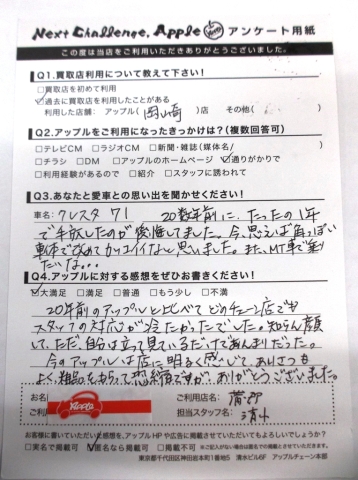 Next Challenge, Apple アンケート用紙
この度は当店をご利用いただきありがとうございました。
Q1.買取店利用について教えて下さい!
□買取店を初めて利用
□過去に買取店を利用したことがある
利用した店舗: アップル(岡崎)店 その他(
Q2.アップルをご利用になったきっかけは?(複数回答可)
□テレビCM □ラジオCM □新聞・雑誌(媒体名
□チラシ □DM □アップルのホームページ □通りがかりで
□利用経験があるので □紹介 □スタッフに誘われて
Q3.あなたと愛車との思い出を聞かせください!
車名: クレスタ 71 20数年前に、たったの1年
で手放したのが後悔しました。今、思えば角っぽい
車体で改めてカッコイイなと思いました。また、MT車で乗り
たいな…
Q4.アップルに対する感想をぜひお書きください!
□大満足 □満足 □普通 □もう少し □不満
20年前のアップルと比べてどのチェーン店でも
スタッフの対応が冷たかったでした。知らん顔
して、ただ自分は立って見ているだけであんまりだった。
今のアップルは店に明るく感じて、あいさつも
よく、粗品をもらって恐縮ですが、ありがとうございました。
お名 ご利用店名:
ご利 Apple 担当スタッフ名: 清水
お客様に書いていただいた感想を、アップルHPや広告に掲載させていただいてもよろしいでしょうか?
□実名で掲載可 □匿名なら掲載可 □掲載不可 ※ご記入がない場合は匿名での掲載とさせていただきます。
東京都千代田区神田岩本町1番地5 清水ビル6F アップルチェーン本部